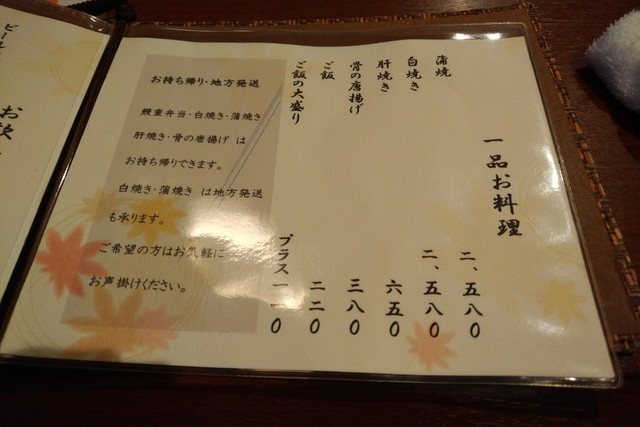 一品お料理
蒲焼 二、五八〇
白焼き 二、五八〇
肝焼き 六五〇
骨の唐揚げ 三八〇
ご飯 二二〇
ご飯の大盛り プラス一一〇
お持ち帰り・地方発送
鰻重弁当・白焼き・蒲焼き
肝焼き・骨の唐揚げ は
お持ち帰りできます。
白焼き・蒲焼き は地方発送
も承ります。
ご希望の方はお気軽に
お声掛けください。
ビール
お飲